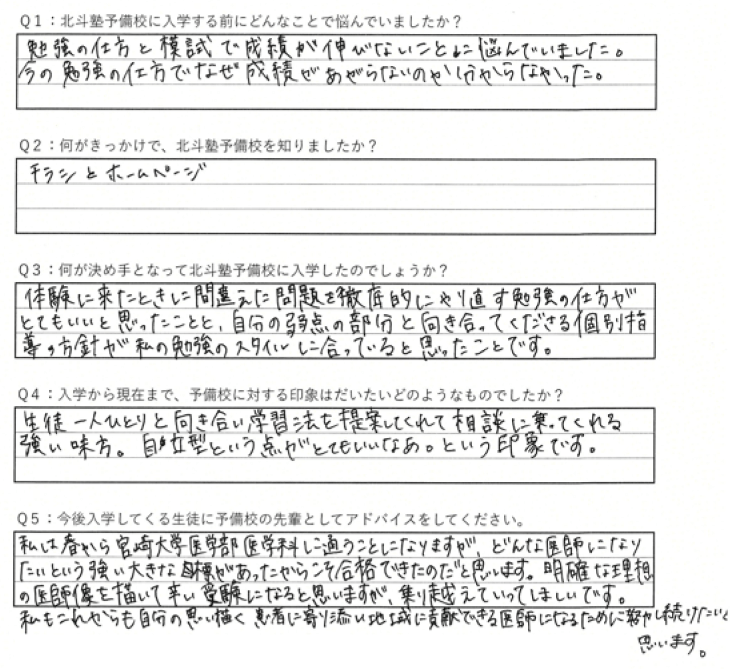 Q1：北斗塾予備校に入学する前にどんなことで悩んでいましたか？
勉強の仕方と模試で成績が伸びないことに悩んでいました。
今の勉強の仕方でなぜ成績があがらないのか分からなかった。
Q2：何がきっかけで、北斗塾予備校を知りましたか？
チラシとホームページ
Q3：何が決め手となって北斗塾予備校に入学したのでしょうか？
体験に来たときに間違えた問題を徹底的にやり直す勉強の仕方が
とてもいいと思ったことと、自分の弱点の部分と向き合ってくださる個別指
導の方針が私の勉強のスタイルに合っていると思ったことです。
Q4：入学から現在まで、予備校に対する印象はだいたいどのようなものでしたか？
生徒一人ひとりと向き合い学習法を提案してくれて相談に乗ってくれる
強い味方。自立型という点がとてもいいなあ。という印象です。
Q5：今後入学してくる生徒に予備校の先輩としてアドバイスをしてください。
私は春から宮崎大学医学部医学科に通うことになりますが、どんな医師になり
たいという強い大きな目標があったからこそ合格できたのだと思います。明確な理想
の医師像を描いて辛い受験になると思いますが、乗り越えていってほしいです。
私もこれからも自分の思い描く患者に寄り添い地域に貢献できる医師になるために努力し続けたいと
思います。